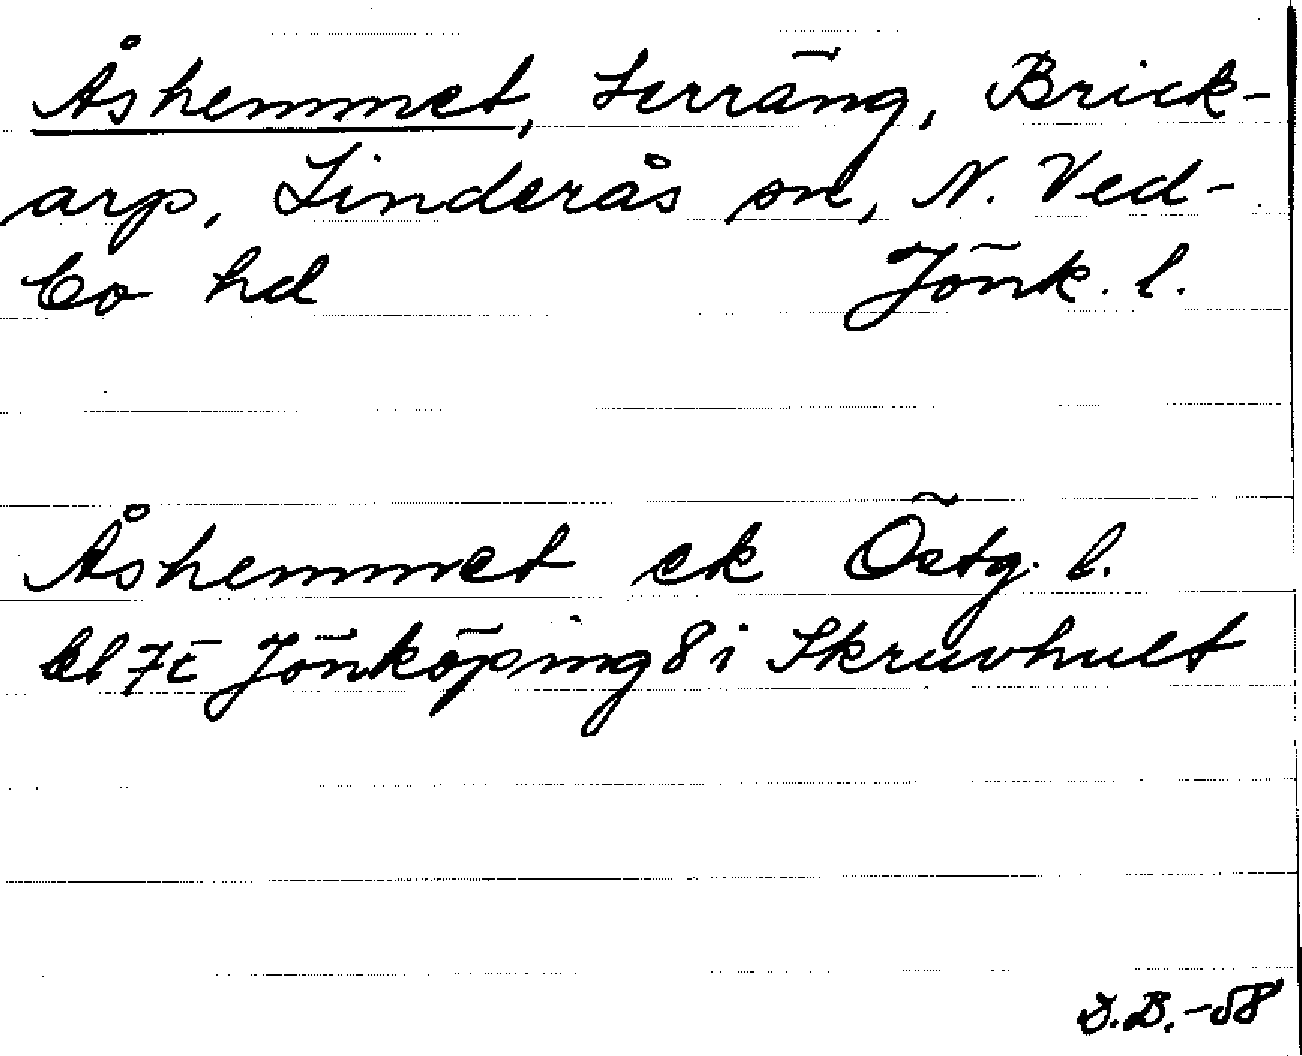 Åshemmet, Terräng, Brick-
arp, Linderås sn, N. Ved-
bo hd Jönk. l.
Åshemmet ek Östg. l.
bl 7E Jönköping 8 i Skruvhult
B. -58